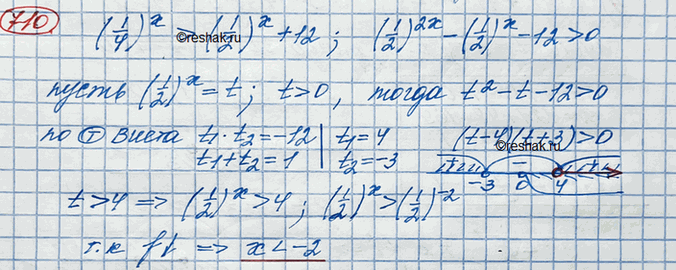 710
(1/4)^x > (1/2)^x + 12 ; (1/2)^2x - (1/2)^x - 12 > 0
©reshak.ru
пусть (1/2)^x = t ; t > 0 , тогда t² - t - 12 > 0
по (T) Виета t₁ · t₂ = -12 | t₁ = 4 (t-4)(t+3) > 0
©reshak.ru
t₁ + t₂ = 1 | t₂ = -3 -
-3 0 4
t > 4 => (1/2)^x > 4 ; (1/2)^x > (1/2)^-2
т.к f↓ => x < -2